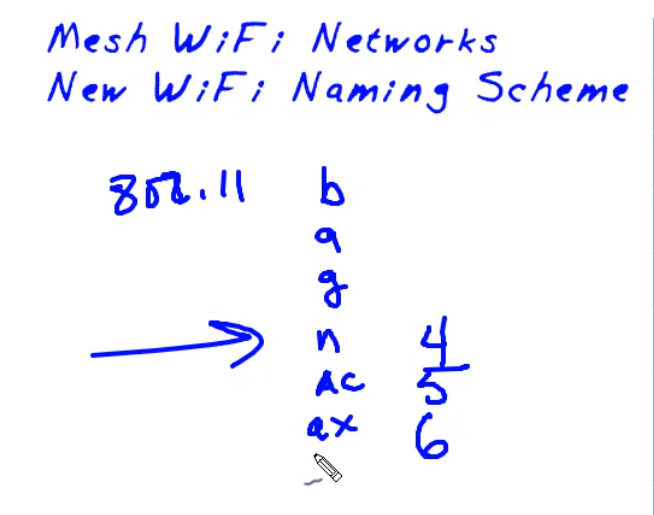 Mesh WiFi Networks
New WiFi Naming Scheme
802.11 b
a
g
n 4
AC 5
ax 6